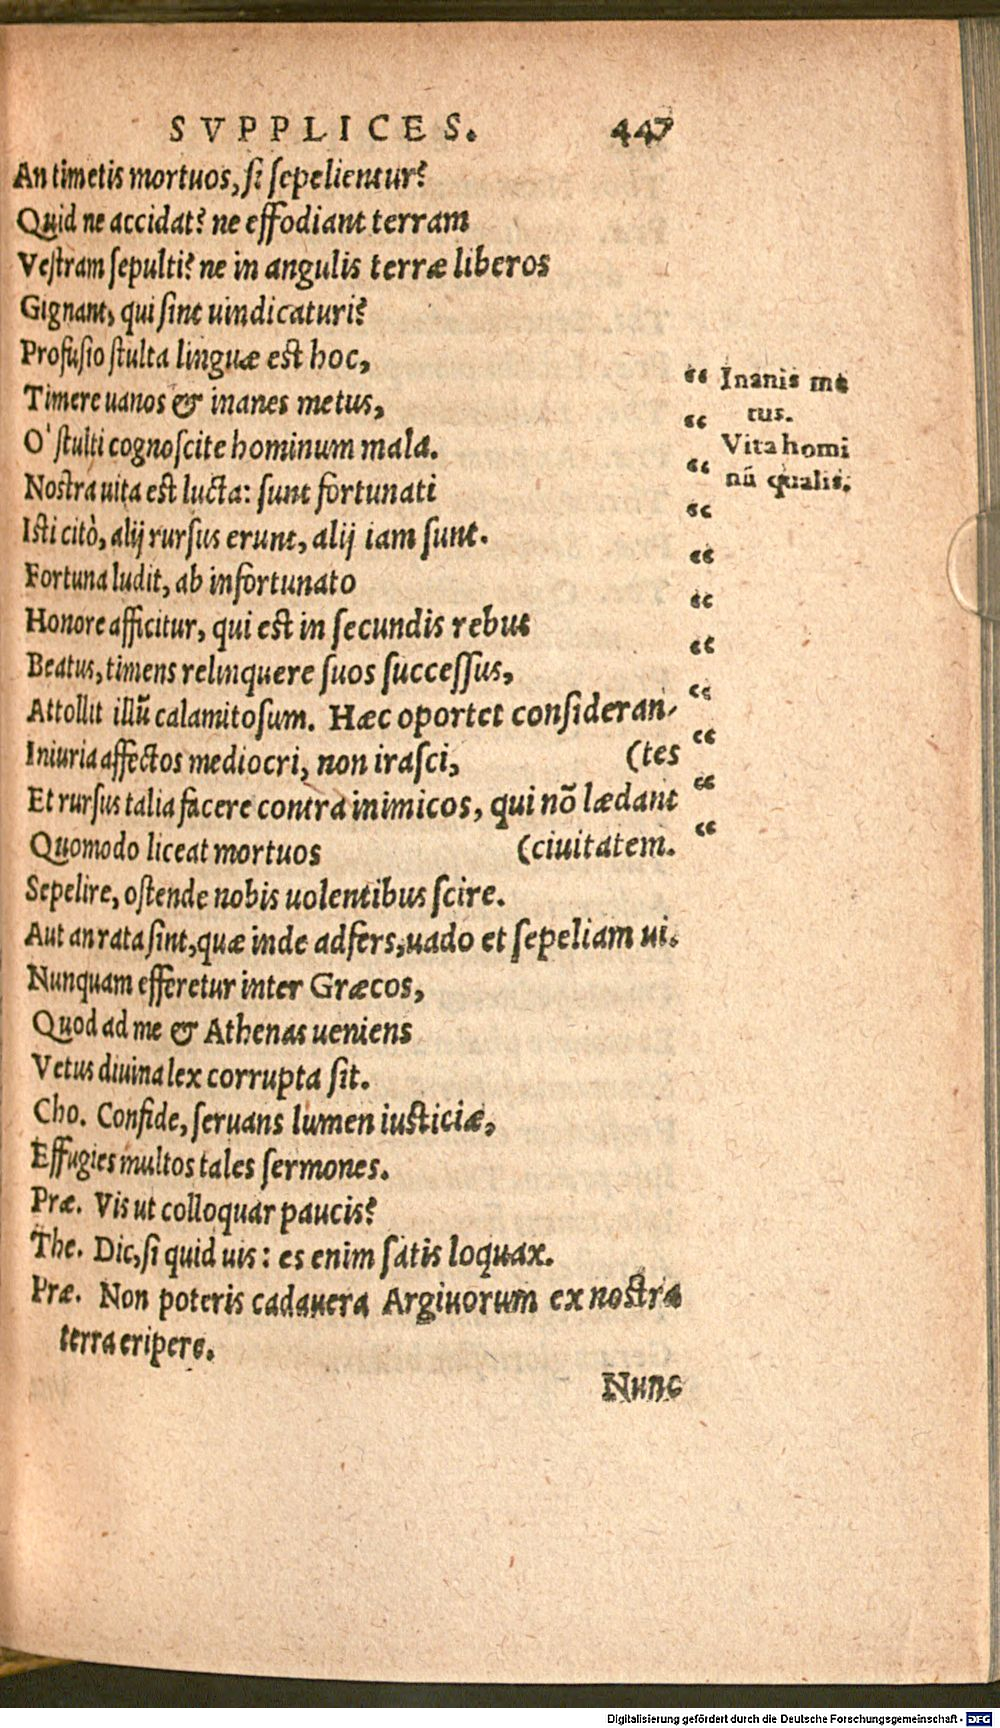 SVPPLICES. 447
An timetis mortuos, si sepelientur?
Quid ne accidat? ne effodiant terram
Vestram sepulti? ne in angulis terræ liberos
Gignant, qui sint uindicaturi?
Profusio stulta linguæ est hoc,
“ Inanis me
Timere uanos & inanes metus,
“ tus.
O' stulti cognoscite hominum mala.
Vita homi
“ nū qualis.
Nostra uita est lucta: sunt fortunati
“
Isti citò, alij rursus erunt, alij iam sunt.
“
Fortuna ludit, ab infortunato
“
Honore afficitur, qui est in secundis rebus
“
Beatus, timens relinquere suos successus,
“
Attollit illū calamitosum. Hæc oportet consideran-
“
Iniuria affectos mediocri, non irasci, (tes
“
Et rursus talia facere contra inimicos, qui nō lædant
“
Quomodo liceat mortuos (ciuitatem.
Sepelire, ostende nobis uolentibus scire.
Aut an rata sint, quæ inde adfers, uado et sepeliam ui.
Nunquam efferetur inter Græcos,
Quod ad me & Athenas ueniens
Vetus diuina lex corrupta sit.
Cho. Confide, seruans lumen iusticiæ,
Effugies multos tales sermones.
Præ. Vis ut colloquar paucis?
The. Dic, si quid uis: es enim satis loquax.
Præ. Non poteris cadauera Argiuorum ex nostra
terra eripere.
Nunc
Digitalisierung gefördert durch die Deutsche Forschungsgemeinschaft - DFG